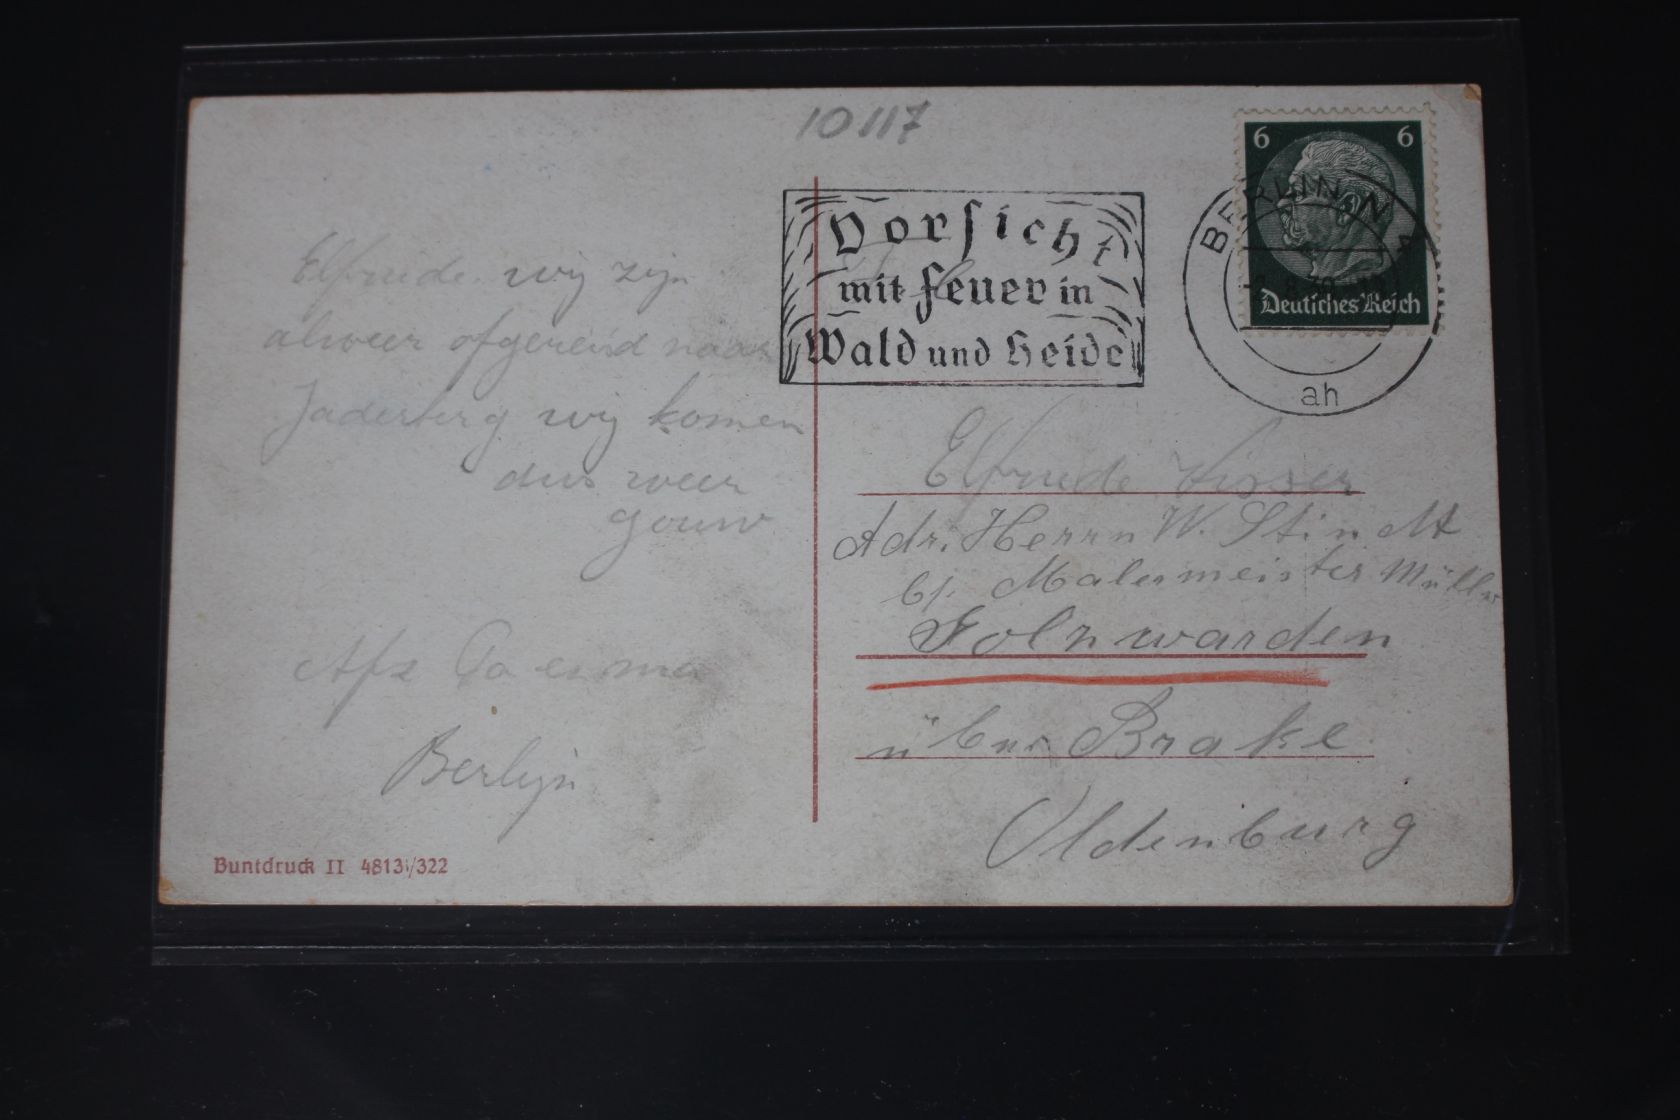 10117
6 6
Deutsches Reich
BERLIN N 4
ah
Vorsicht
mit Feuer in
Wald und Heide
Elfriede wij zijn
alweer afgereisd naar
Jaderberg wij komen
dus weer
gouw
Berlijn
Elfriede Visser
Adr. Herrn W. Stindt
b/. Malermeister Müller
Golzwarden
über Brake
Oldenburg
Buntdruck II 4813/322